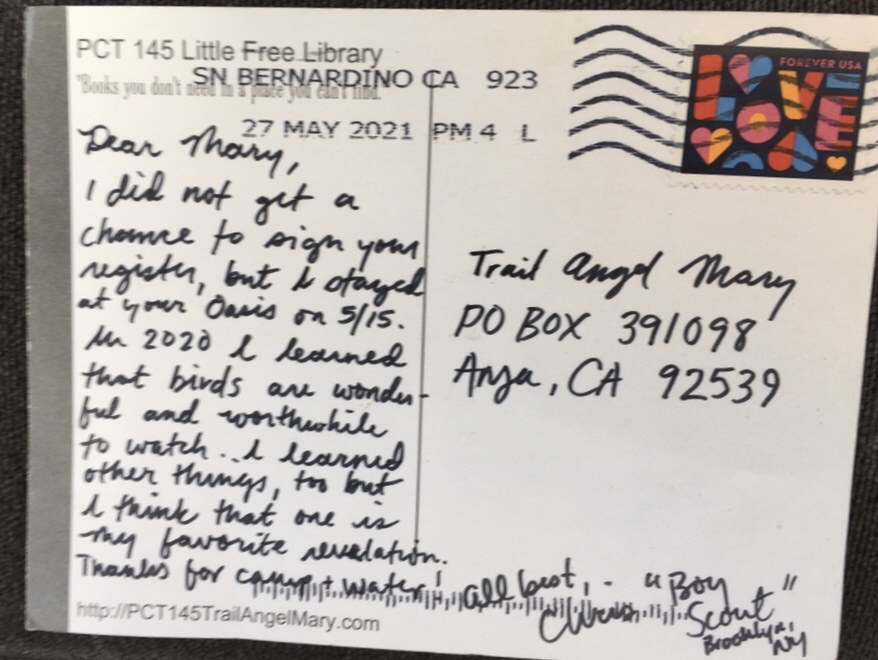 PCT 145 Little Free Library
"Books you don't need in a place you can't find."
SN BERNARDINO CA 923
27 MAY 2021 PM 4 L
FOREVER USA
LOVE
Dear Mary,
I did not get a
chance to sign your
register, but I stayed
at your Oasis on 5/15.
In 2020 I learned
that birds are wonder-
ful and worthwhile
to watch.. I learned
other things, too but
I think that one is
my favorite revelation.
Thanks for camp + water!
All best, - "Boy
Scout"
Brooklyn,
NY
Trail Angel Mary
PO BOX 391098
Anza, CA 92539
http://PCT145TrailAngelMary.com